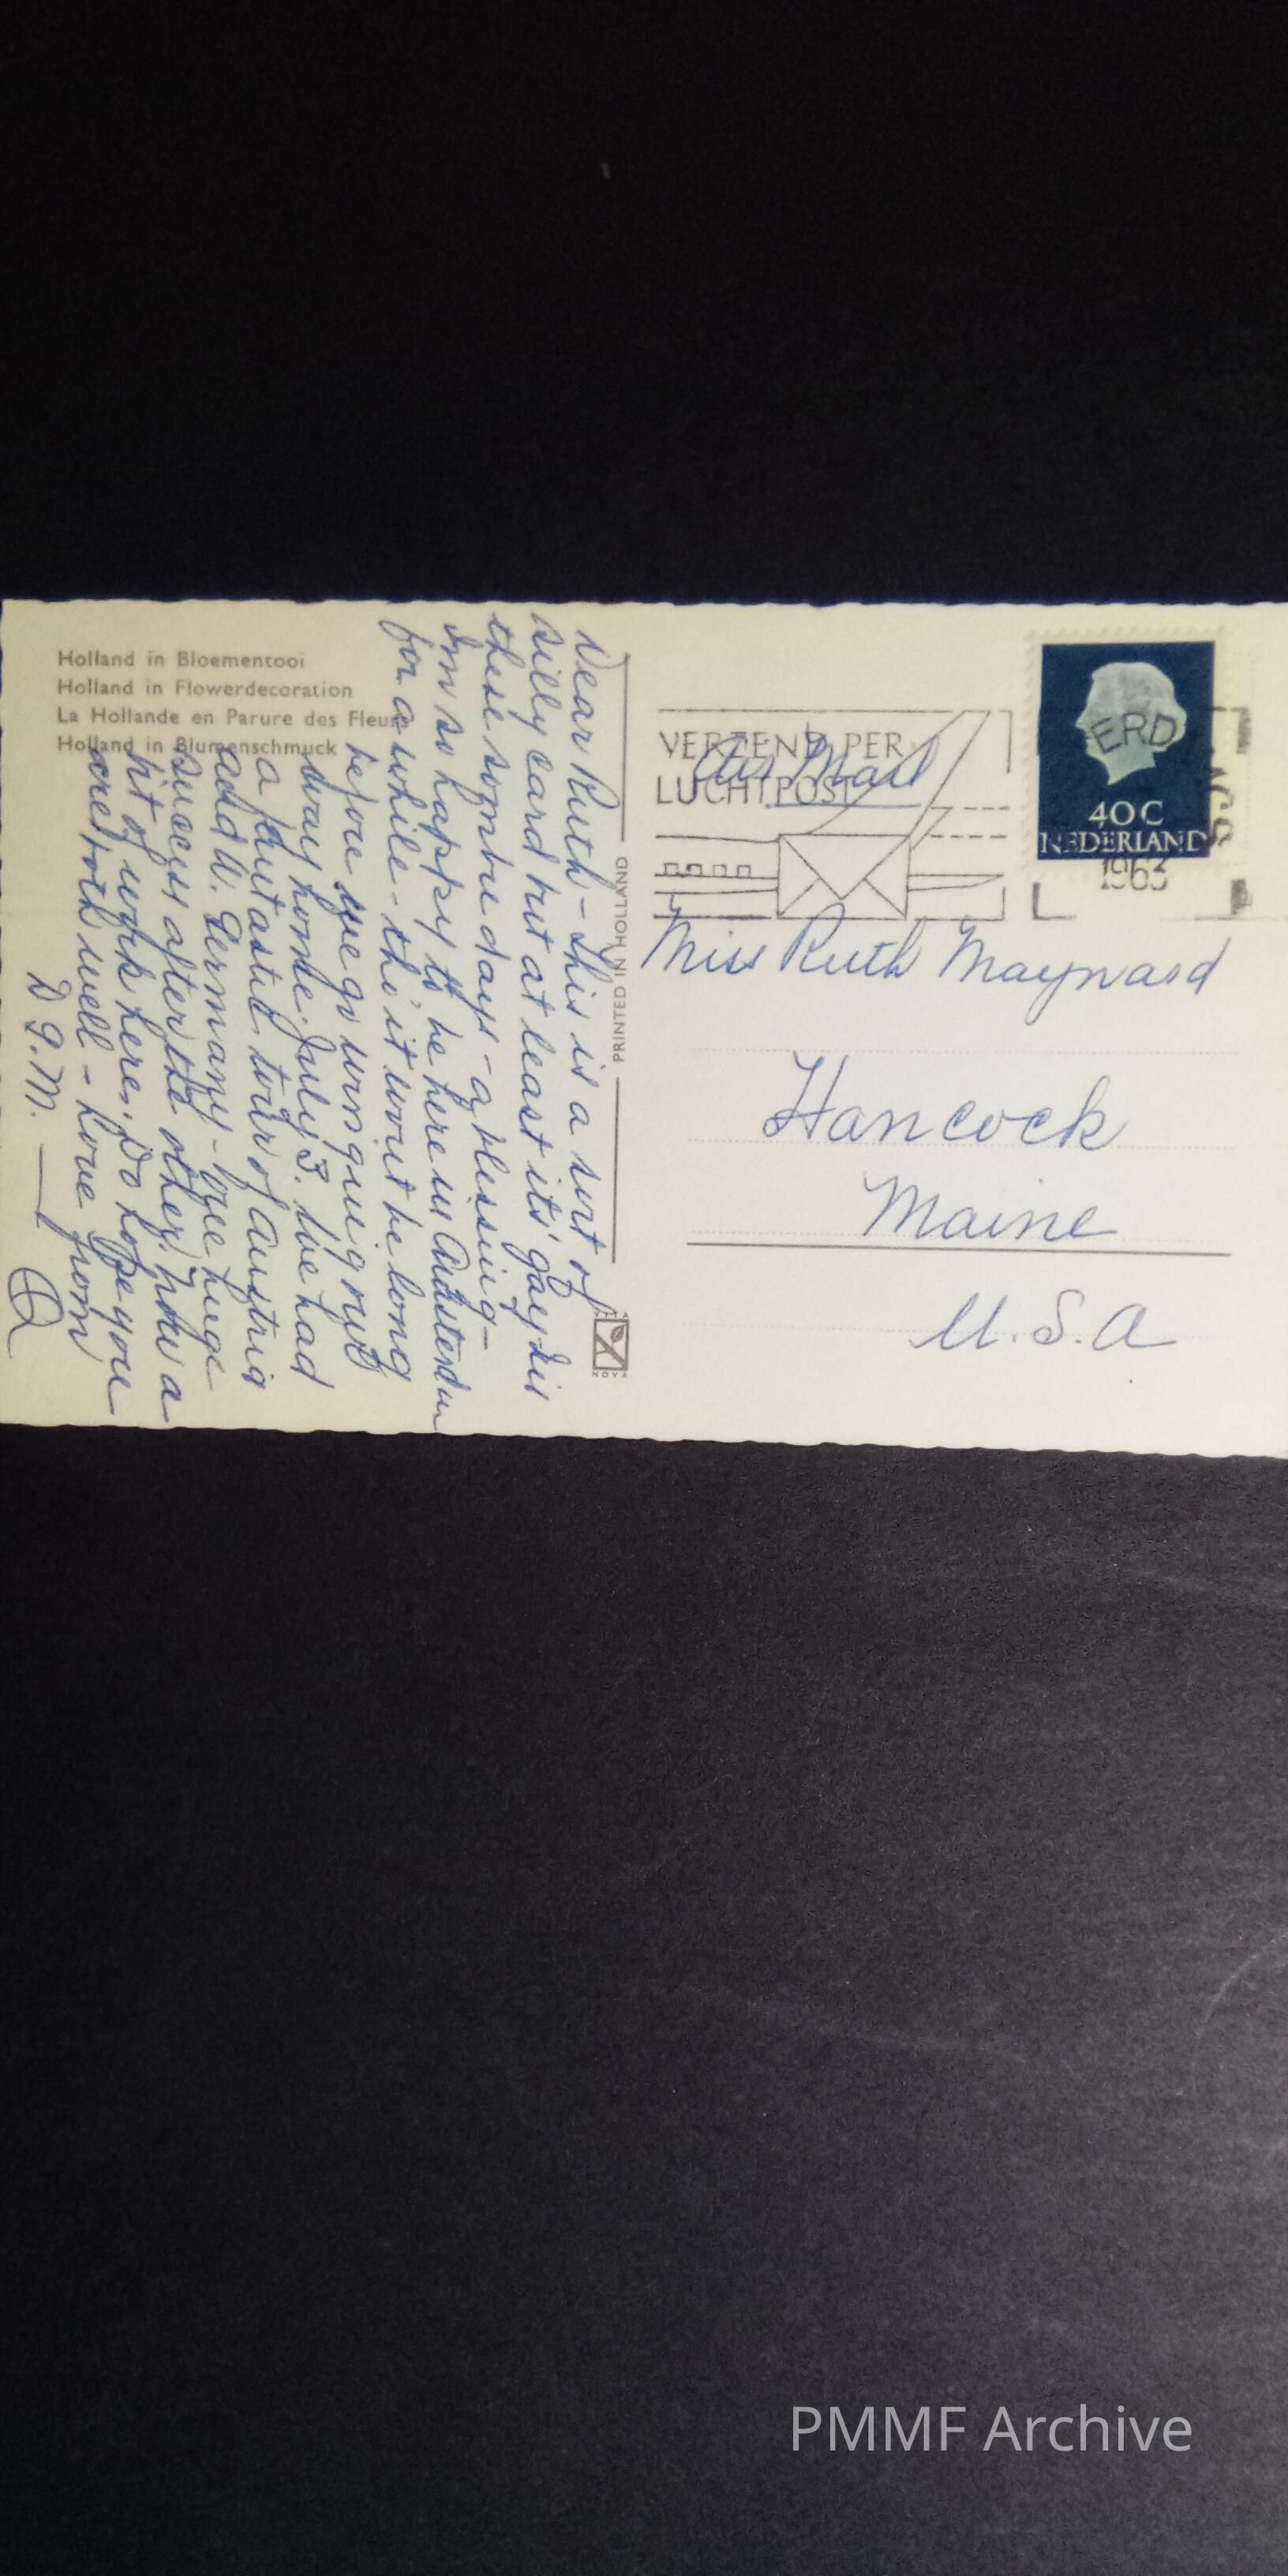 Holland in Bloementooi
Holland in Flowerdecoration
La Hollande en Parure des Fleurs
Holland in Blumenschmuck
Dear Ruth - This is a sort of
silly card but at least it's gay. In
these sombre days - a blessing -
I'm so happy to be here in Amsterdam
for a while - tho' it won't be long
before we go winging our
way home. July 3. We had
a fantastic tour of Austria
and W. Germany - one huge
success after the other. Now a
bit of work here. Do hope you
are both well - Love from
D. G. M.
PRINTED IN HOLLAND
NOVA
VERZEND PER
LUCHTPOST
Air Mail
ERD
40C
NEDERLAND
1963
Miss Ruth Maynard
Hancock
Maine
U.S.A
PMMF Archive